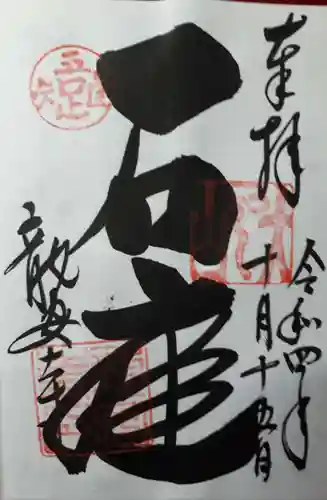 奉拝
令和四年
十月十五日
石庭
龍安寺
吾唯足知